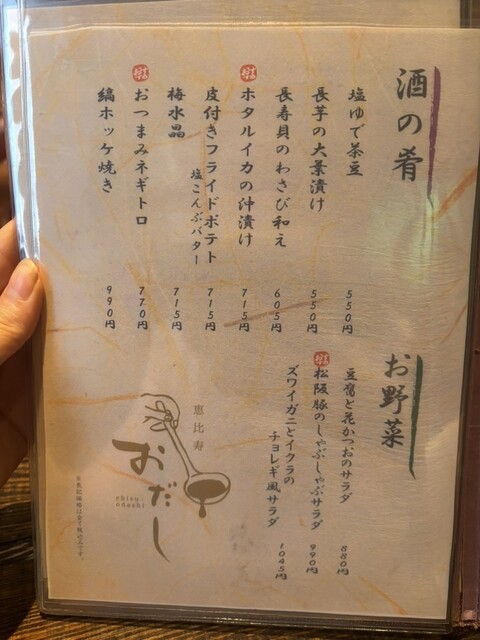 酒の肴
塩ゆで茶豆 550円
長芋の大葉漬け 550円
長寿貝のわさび和え 605円
ホタルイカの沖漬け 715円
皮付きフライドポテト 715円
塩こんぶバター
梅水晶 715円
おつまみネギトロ 770円
縞ホッケ焼き 990円
お野菜
豆腐と花かつおのサラダ 880円
松阪豚のしゃぶしゃぶサラダ 990円
ズワイガニとイクラの
チョレギ風サラダ 1045円
恵比寿
おだし
ebisu
odashi
※表記価格は全て税込みです。